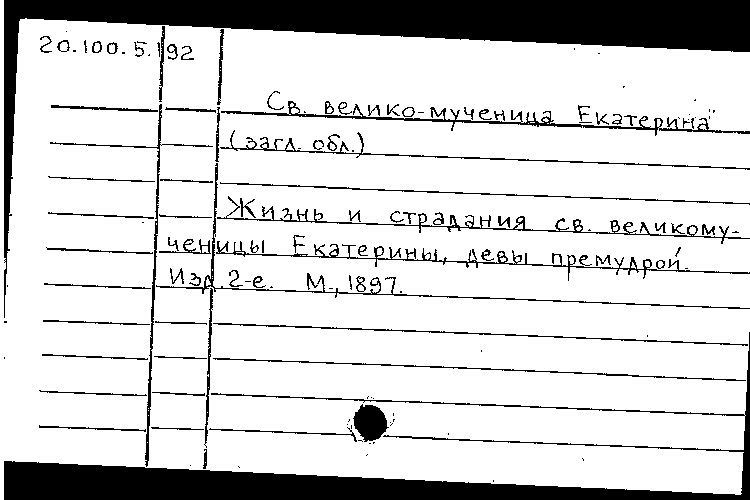 20.100.5.192
Св. велико-мученица Екатерина"
(загл. обл.)
Жизнь и страдания св. великому-
ченицы Екатерины, девы премудрой.
Изд. 2-е. М., 1897.